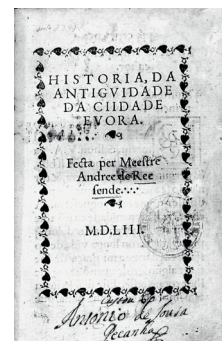 HISTORIA, DA
ANTIGVIDADE
DA CIIDADE
EVORA.
Fecta per Meestre
Andree de Ree
sende.
M.D.LIII.
Antonio de Sousa